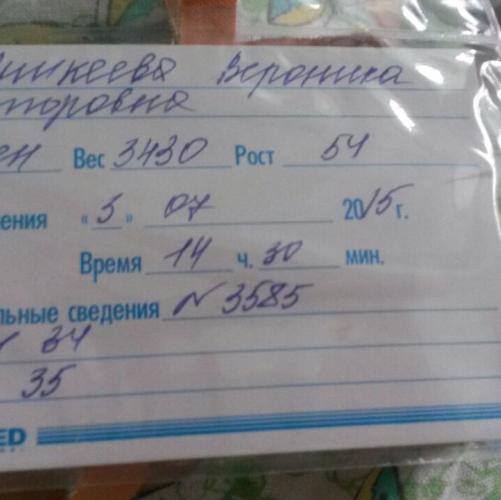 Вероника
торовна
ен Вес 3430 Рост 54
ения «3» 07 2015 г.
Время 14 ч. 30 мин.
льные сведения N 3585
34
35
ED